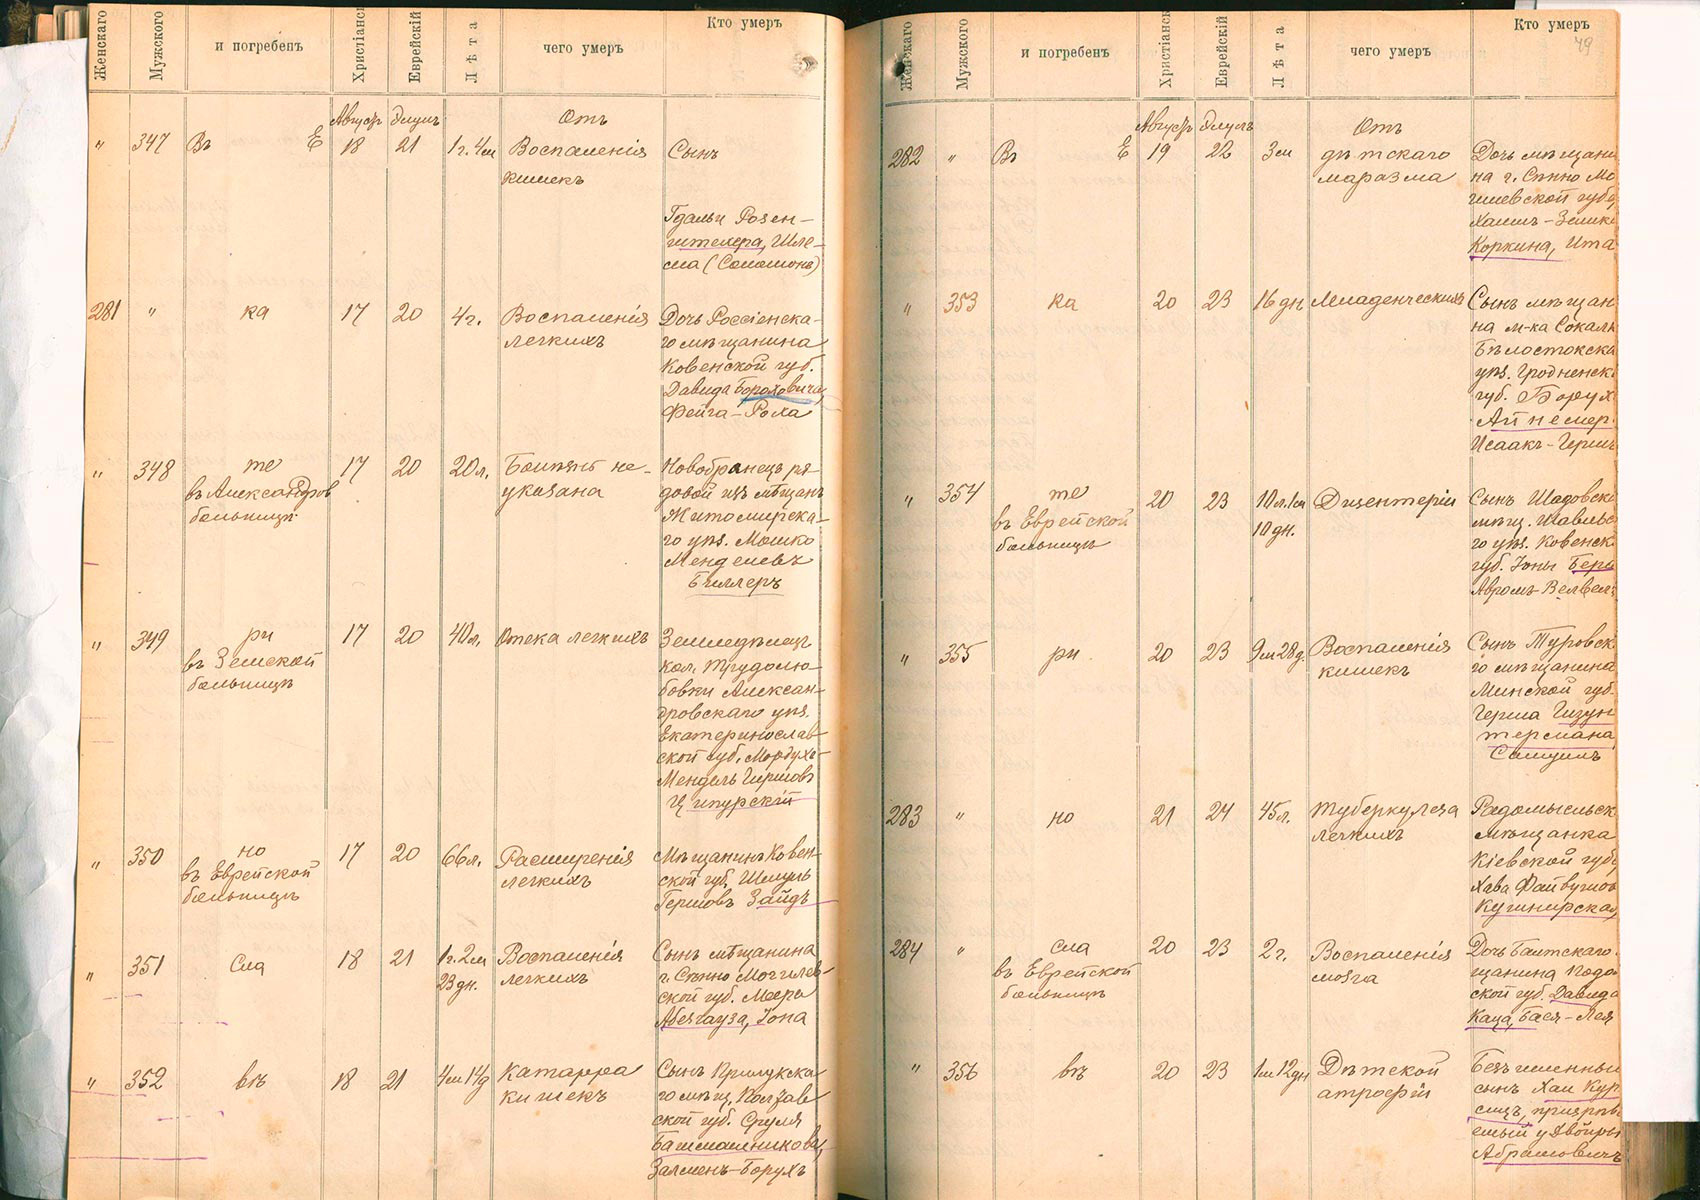 Женскаго
Мужского
и погребенъ
Христіанскій
Еврейскій
Лѣта
чего умеръ
Кто умеръ
Августъ Элулъ
Отъ
" 347 Въ Е 18 21 1г.4м Воспаленія Сынъ
кишекъ
Гдальи Розен-
сма (Соломонъ)
281 " ка 17 20 4г. Воспаленія Дочь Россіенска-
легкихъ го мѣщанина
Ковенской губ.
Давида Бороховича,
Фейга-Роха
" 348 те 17 20 20л. Болѣзнь не- Новобранецъ ря-
въ Александров указана довой изъ мѣщанъ
больницѣ Житомирска-
го уѣз. Мошко
Менделевъ
Биллеръ
" 349 ри 17 20 40л. Отека легкихъ Земледѣлецъ
въ Земской кол. Трудолю-
больницѣ бовки Алексан-
дровскаго уѣз.
Екатеринослав-
ской губ. Мордухъ-
Мендель Гиршовъ
Ципурскій
" 350 но 17 20 66л. Расширенія Мѣщанинъ Ковен-
въ Еврейской легкихъ ской губ. Шмуль
больницѣ Гершовъ Зайдъ
" 351 Сла 18 21 1г.2м Воспаленія Сынъ мѣщанина
23дн. легкихъ г. Сѣнно Могилев-
ской губ. Меера
Абезгауза, Іона
" 352 вѣ 18 21 4м14д Катарра Сынъ Прилукска-
кишекъ го мѣщ. Полтав-
ской губ. Сруля
Башмашникова,
Залмень-Борухъ
Женскаго
Мужского
и погребенъ
Христіанск
Еврейскій
Лѣта
чего умеръ
Кто умеръ
49
Августъ Элулъ
Отъ
282 " Въ Е 19 22 3м дѣтскаго Дочь мѣщани
маразма на г. Сѣнно Мо
гилевской губ.
Хаимъ-Зелика
Коркина, Ита
" 353 ка 20 23 16дн Младенческихъ Сынъ мѣщан
на м-ка Сокалк
Бѣлостокска
уѣз. Гродненск
губ. Борух
Айнемер
Исаакъ-Герш
" 354 те 20 23 10л.1м Дизентеріи Сынъ Шадовск
въ Еврейской 10дн. мѣщ. Шавельс
больницѣ го уѣз. Ковенск
губ. Іоны Бер
Авромъ-Велвел
" 355 ри 20 23 9м28д. Воспаленія Сынъ Туровск
кишекъ го мѣщанина
Минской губ.
Герша Гизун
термана
Самуилъ
283 " но 21 24 45л. Туберкулеза Радомысльск
легкихъ мѣщанка
Кіевской губ.
Хава Файвушов
Кушнирская,
284 " сла 20 23 2г. Воспаленія Дочь Балтскаго
въ Еврейской мозга щанина Подо
больницѣ ской губ. Давида
Каца, Бася-Лея
" 356 вѣ 20 23 1м12дн Дѣтской Безъименный
атрофіи сынъ Хаи Кур
ицъ, призрѣв
емый у Двойры
Абрамовичъ